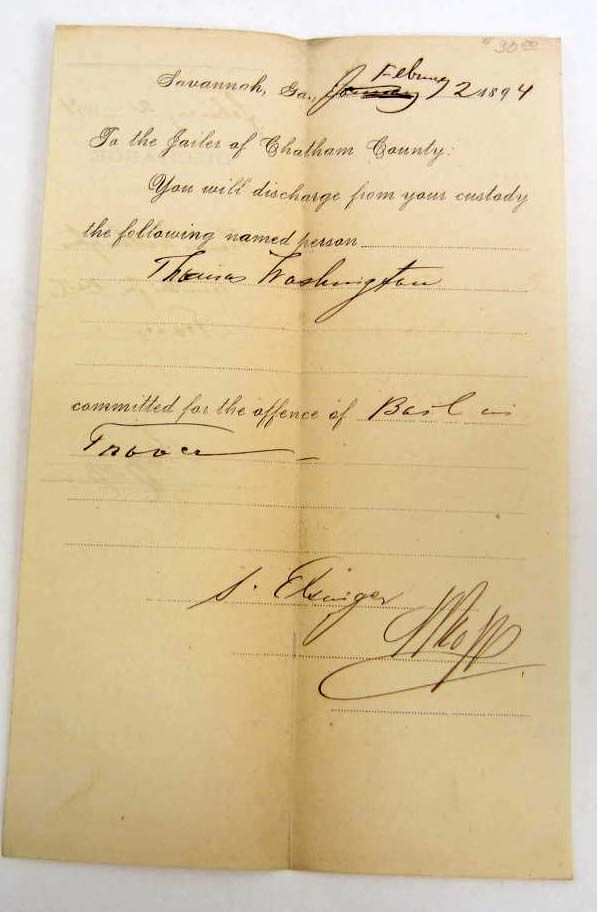 "30 00
Februy
Savannah, Ga., January 2 1894
To the Jailer of Chatham County:
You will discharge from your custody
the following named person
Thomas Washington
committed for the offence of Bail in
Trover
S. Elsinger